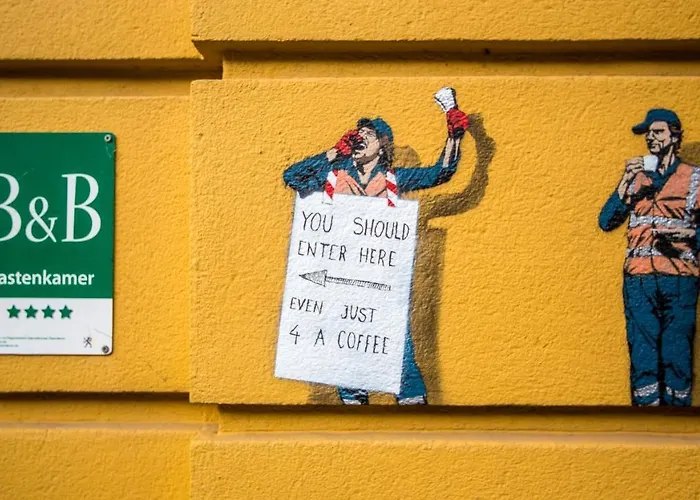 B&B
astenkamer
YOU SHOULD
ENTER HERE
EVEN JUST
4 A COFFEE